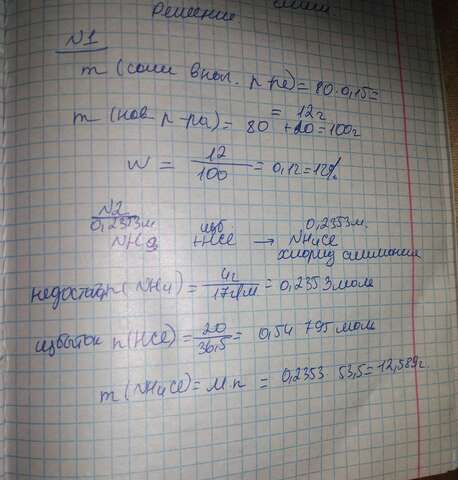 Решение
N1
m (соли в нач. р-ре) = 80·0,15=
= 12г
m (нов р-ра) = 80 +20=100г
W = 12/100 = 0,12=12%
N2
0,2353м изб 0,2353м.
NH3 HCl → NH4Cl
хлорид аммония
недостаток n(NH4) = 4г/17г/м = 0,2353моль
избыток n(HCl) = 20/36,5 = 0,54 795 моль
m (NH4Cl) = M n = 0,2353 53,5=12,589г.